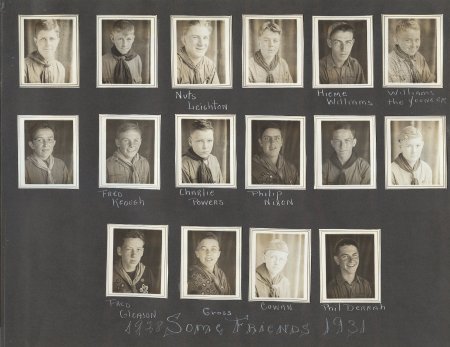 Nuts
Leighton
Hieme
Williams
Williams
the Younger
Fred
Keough
Charlie
Powers
Philip
Nixon
Fred
Gleason
Gross
Cowan
Phil Derrah
1928 Some Friends 1931